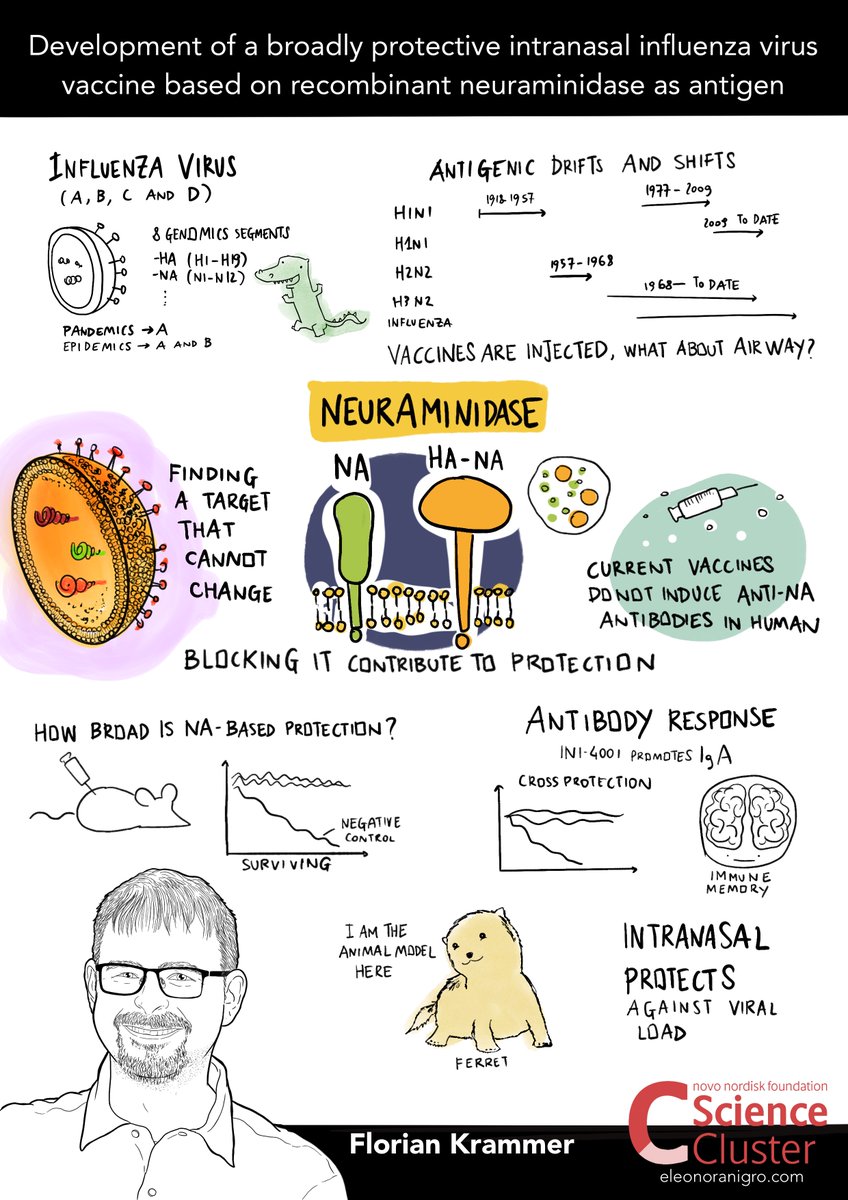 Development of a broadly protective intranasal influenza virus
vaccine based on recombinant neuraminidase as antigen
INFLUENZA VIRUS
(A, B, C AND D)
8 GENOMICS SEGMENTS
-HA (H1-H19)
-NA (N1-N12)
⋮
PANDEMICS → A
EPIDEMICS → A AND B
ANTIGENIC DRIFTS AND SHIFTS
H1N1
1918-1957
1977-2009
H1N1
2009 TO DATE
H2N2
1957-1968
H3N2
1968- TO DATE
INFLUENZA
VACCINES ARE INJECTED, WHAT ABOUT AIRWAY?
NEURAMINIDASE
FINDING
A TARGET
THAT
CANNOT
CHANGE
NA
HA-NA
CURRENT VACCINES
DO NOT INDUCE ANTI-NA
ANTIBODIES IN HUMAN
BLOCKING IT CONTRIBUTE TO PROTECTION
HOW BROAD IS NA-BASED PROTECTION?
NEGATIVE
CONTROL
SURVIVING
ANTIBODY RESPONSE
INI-4001 PROMOTES IgA
CROSS PROTECTION
IMMUNE
MEMORY
I AM THE
ANIMAL MODEL
HERE
FERRET
INTRANASAL
PROTECTS
AGAINST VIRAL
LOAD
Florian Krammer
novo nordisk foundation
Science
Cluster
eleonoranigro.com